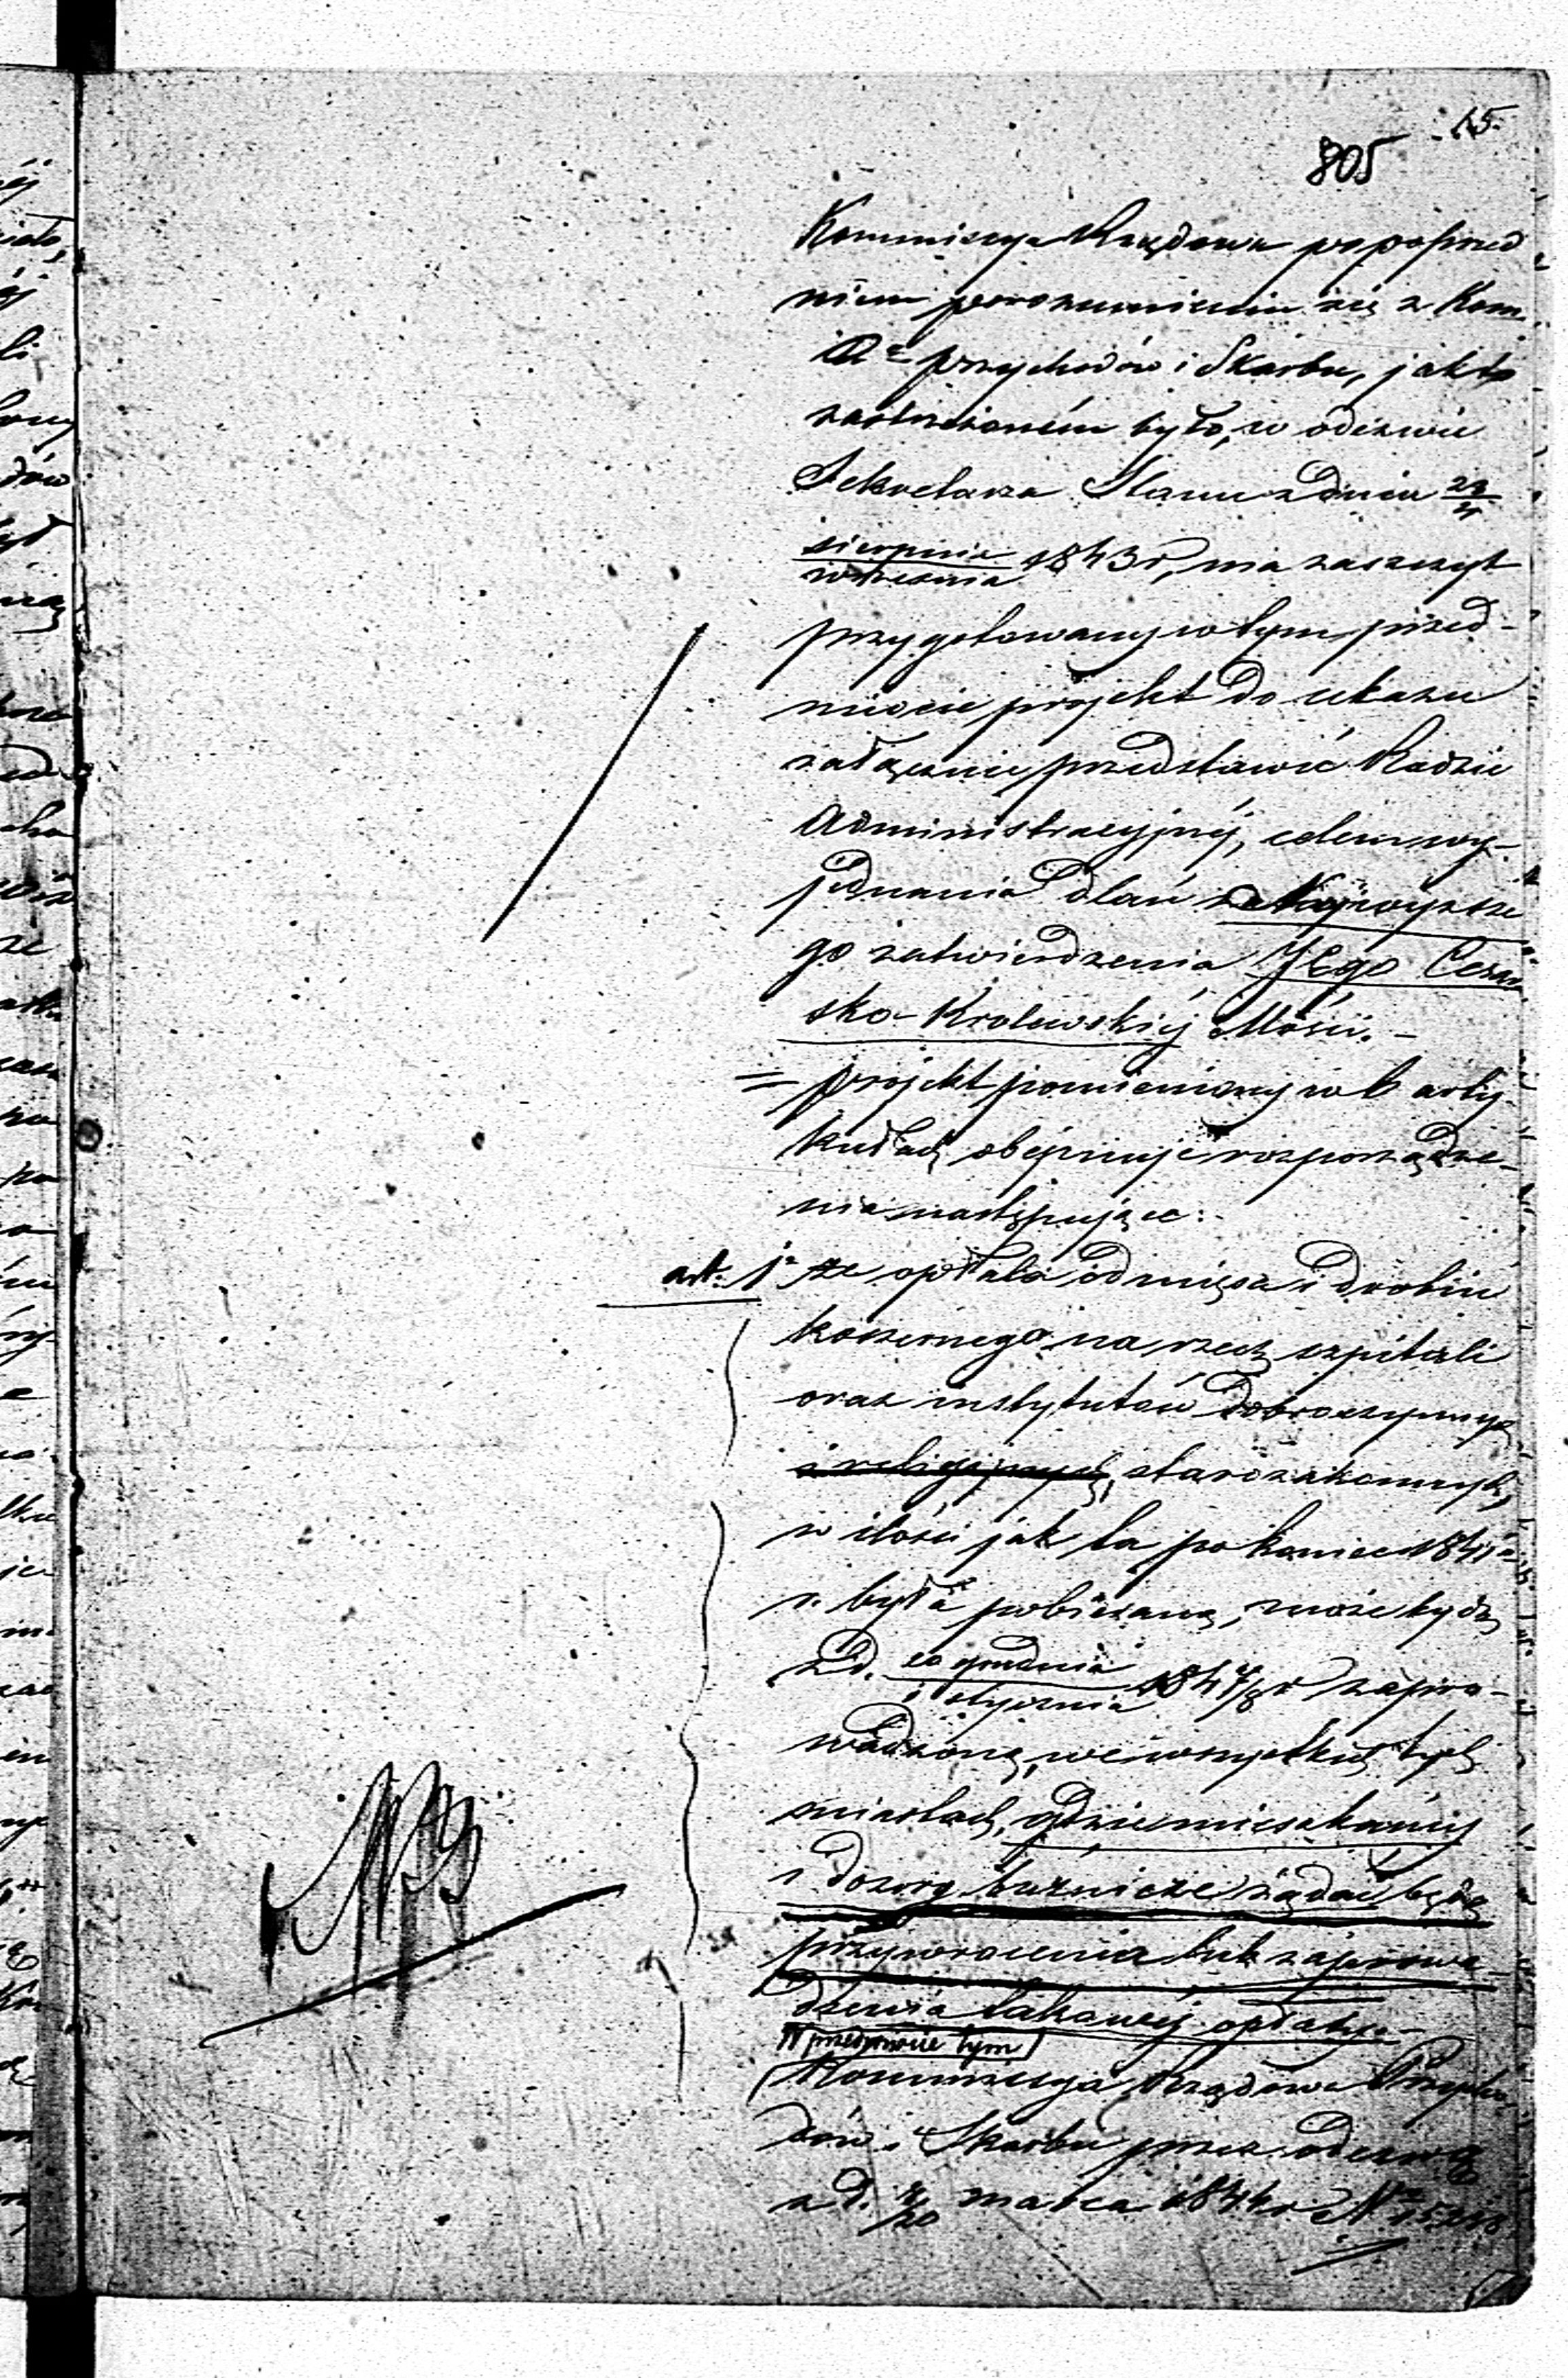 15.
805
Kommissya Rządowa po poprzed
niem porozumieniu się z Kom.
Rz. przychodów i Skarbu, jak to
zastrzeżoném było, w odezwie
Sekretarza Stanu z dnia 23/4
sierpnia/września 1843 r, ma zaszczyt
przygotowany w tym przed-
miocie projekt do ukazu
załącznie przedstawić Radzie
Administracyjnéj, celem wy-
jednania dlań Najwyższe
go zatwierdzenia JEgo Cesar
sko-Krolewskiéj Mości.-
= projekt pomieniony w 6 arty-
kułach obejmuje rozporządze-
nia następujące:-
art. 1. że opłata od mięsa i drobiu
koszernego na rzecz szpitali
oraz instytutów dobroczynnych
i religijnych, starozakonnych,
w ilości jak ta po koniec 1841
r. była pobieraną, może być
z d. 20 grudnia/1 stycznia 184 7/8 r zapro-
wadzoną, we wszystkich tych
miastach, gdzie mieszkańcy
i dozory bużnicze żądać będą
przywrócenia lub zaprowa-
dzenia takowéj opłaty.-
W przedmiocie tym
Kommissya Rządowa Przycho
dów i Skarbu przez odezwę
z d. /20 marca 1844 r N°